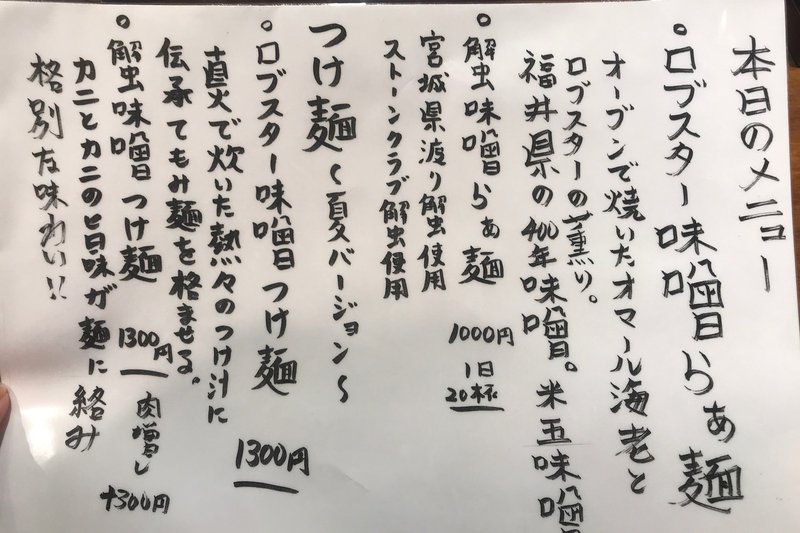 本日のメニュー
。ロブスター味噌らぁ麺
オーブンで焼いたオマール海老と
ロブスターの薫り。
福井県の400年味噌。米五味噌
。蟹味噌らぁ麺
1000円
1日
20杯
宮城県渡り蟹使用
ストーンクラブ蟹使用
つけ麺〜夏バージョン〜
。ロブスター味噌つけ麺
1300円
直火で炊いた熱々のつけ汁に
伝承てもみ麺を格ませる。
。蟹味噌つけ麺
1300円
肉増し
+300円
カニとカニの旨味が麺に絡み
格別な味わい!!